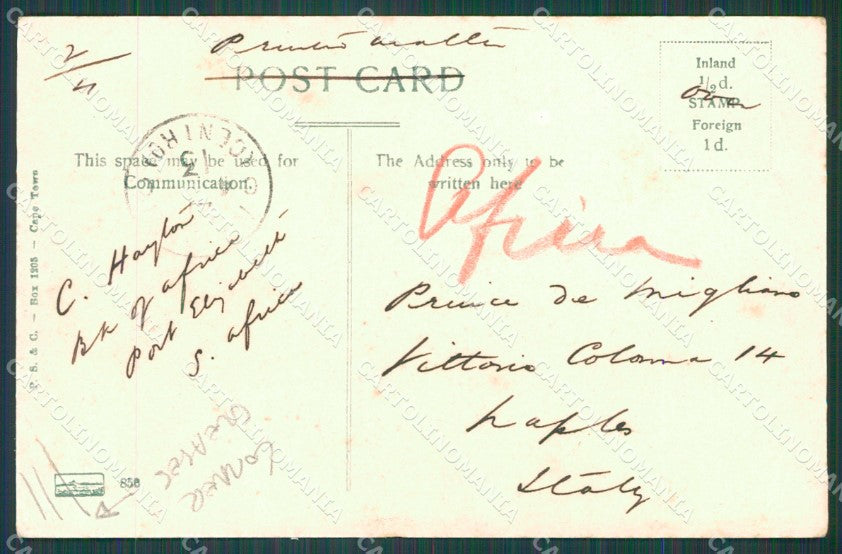 2/11
Printed matter
POST CARD
Inland
½d.
Over
STAMP
Foreign
1d.
This space may be used for
Communication.
The Address only to be
written here
Africa
C. Hayton
Bk of Africa
Port Elizabeth
S. Africa
Prince de Migliano
Vittorio Colonna 14
Naples
Italy
P. S. & C. – Box 1295 – Cape Town
CORNER
CREASES
850
CARTOLINOMANIA